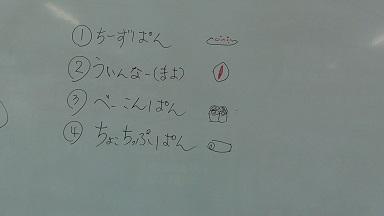 ① ちーずぱん
② ういんなー(まよ)
③ べーこんぱん
④ ちょこちっぷぱん